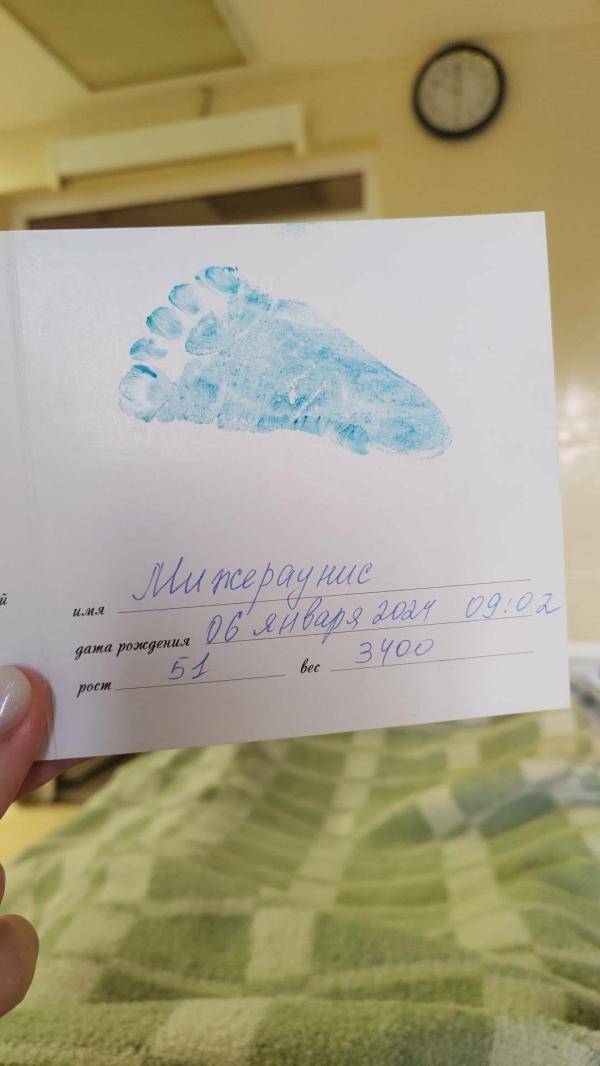 й
имя Мижераунис
дата рождения 06 января 2024 09:02
рост 51 вес 3400